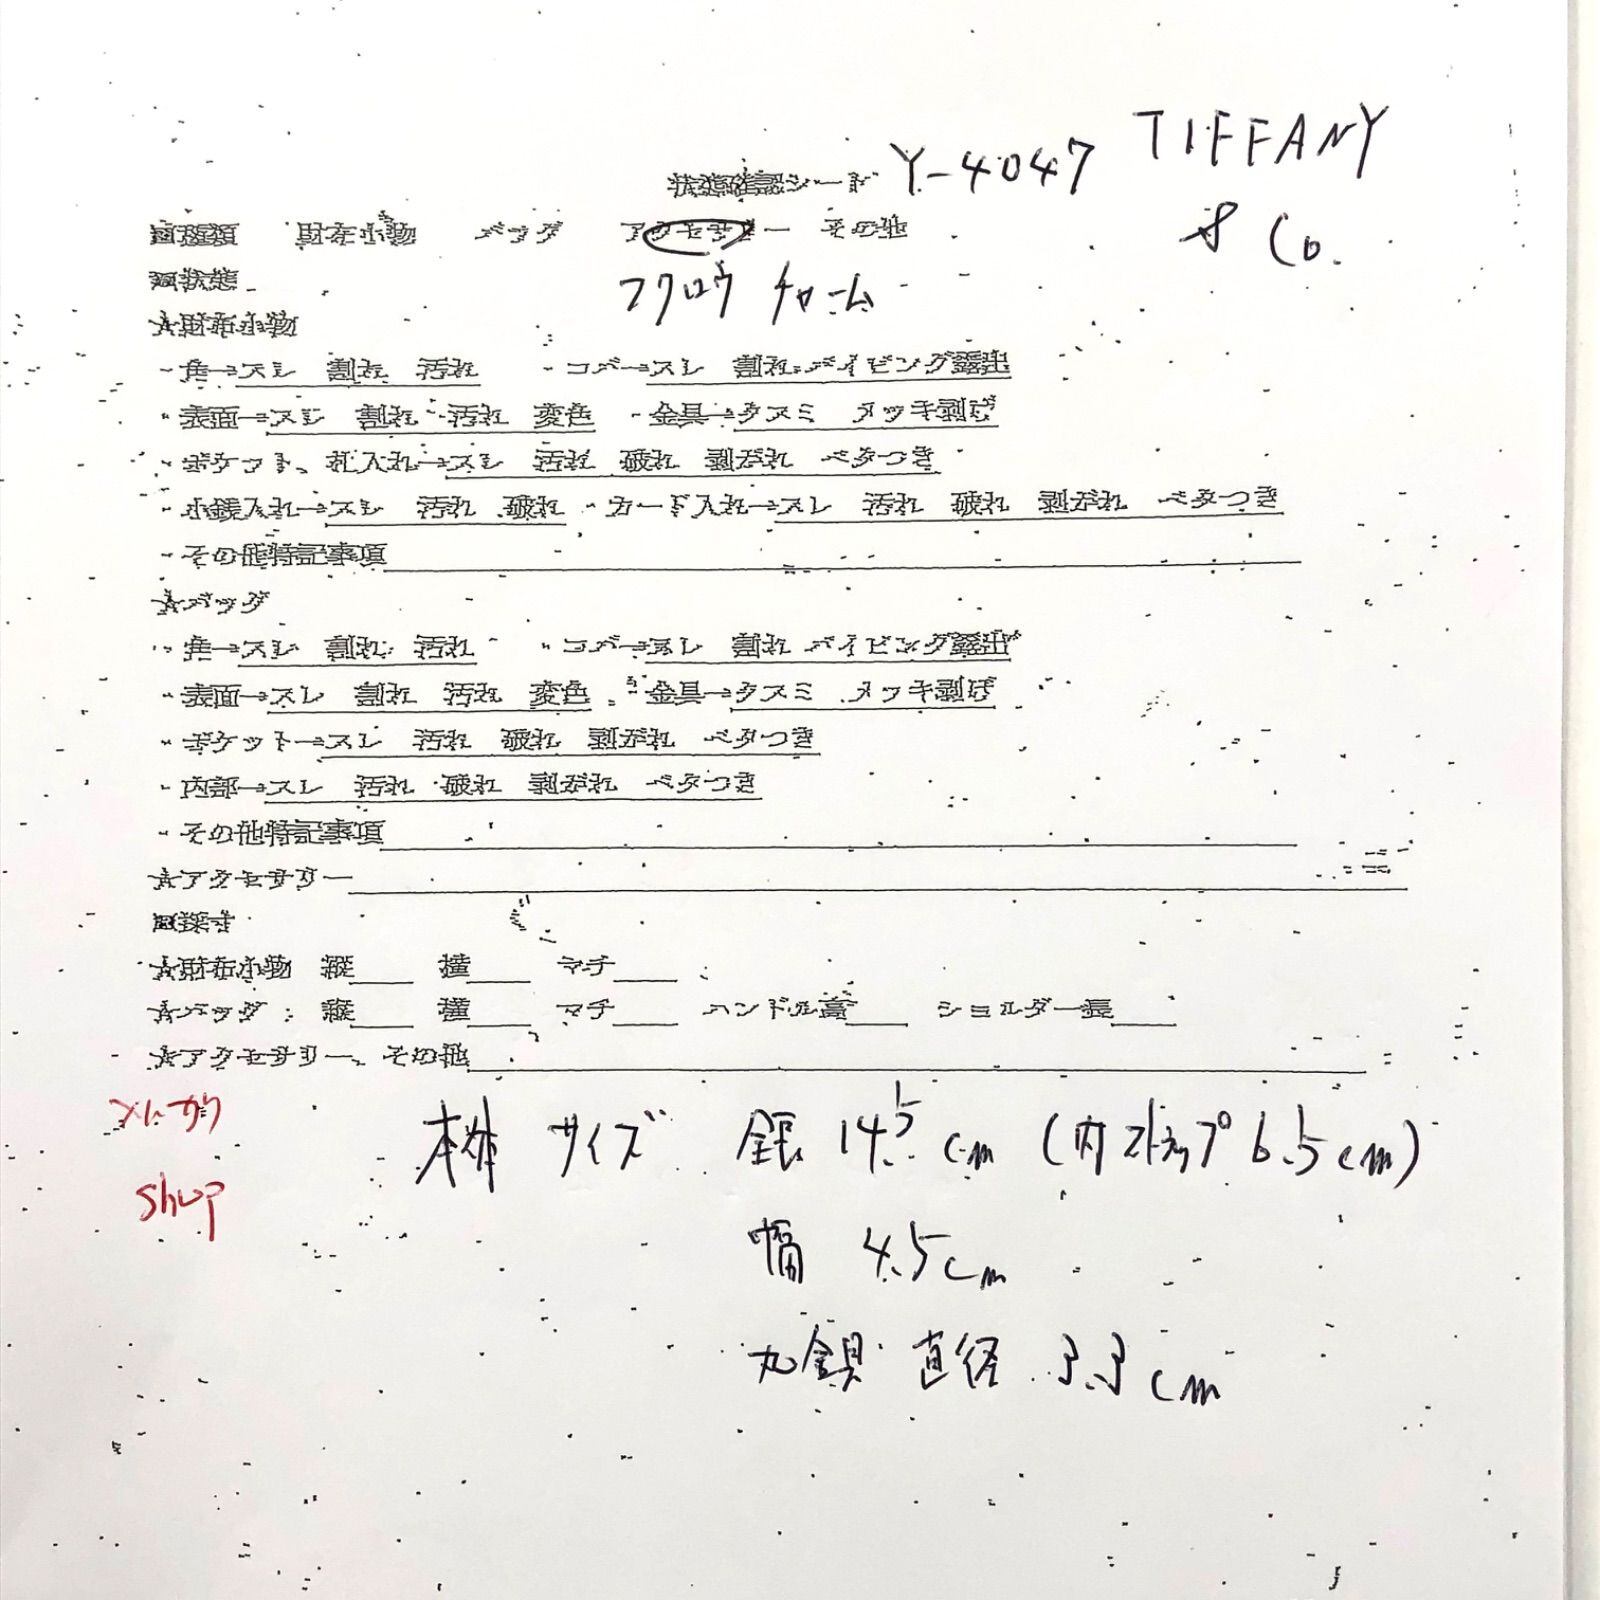 状態確認シート Y-4047 TIFFANY & Co.
■種類 財布小物 バッグ アクセサリー その他
■状態 フクロウ チャーム
☆財布小物
・角→スレ 割れ 汚れ ・コバ→スレ 割れ パイピング露出
・表面→スレ 割れ 汚れ 変色 ・金具→クスミ メッキ剥げ
・ポケット、札入れ→スレ 汚れ 破れ 剥がれ ベタつき
・小銭入れ→スレ 汚れ 破れ ・カード入れ→スレ 汚れ 破れ 剥がれ ベタつき
・その他特記事項
☆バッグ
・角→スレ 割れ 汚れ ・コバ→スレ 割れ パイピング露出
・表面→スレ 割れ 汚れ 変色 ・金具→クスミ メッキ剥げ
・ポケット→スレ 汚れ 破れ 剥がれ ベタつき
・内部→スレ 汚れ 破れ 剥がれ ベタつき
・その他特記事項
☆アクセサリー
■採寸
☆財布小物 縦 横 マチ
☆バッグ: 縦 横 マチ ハンドル高 ショルダー長
☆アクセサリー、その他
メルカリ
shop
本体 サイズ 全長 14.5cm (内ストラップ 6.5cm)
幅 4.5cm
丸金具 直径 3.3cm